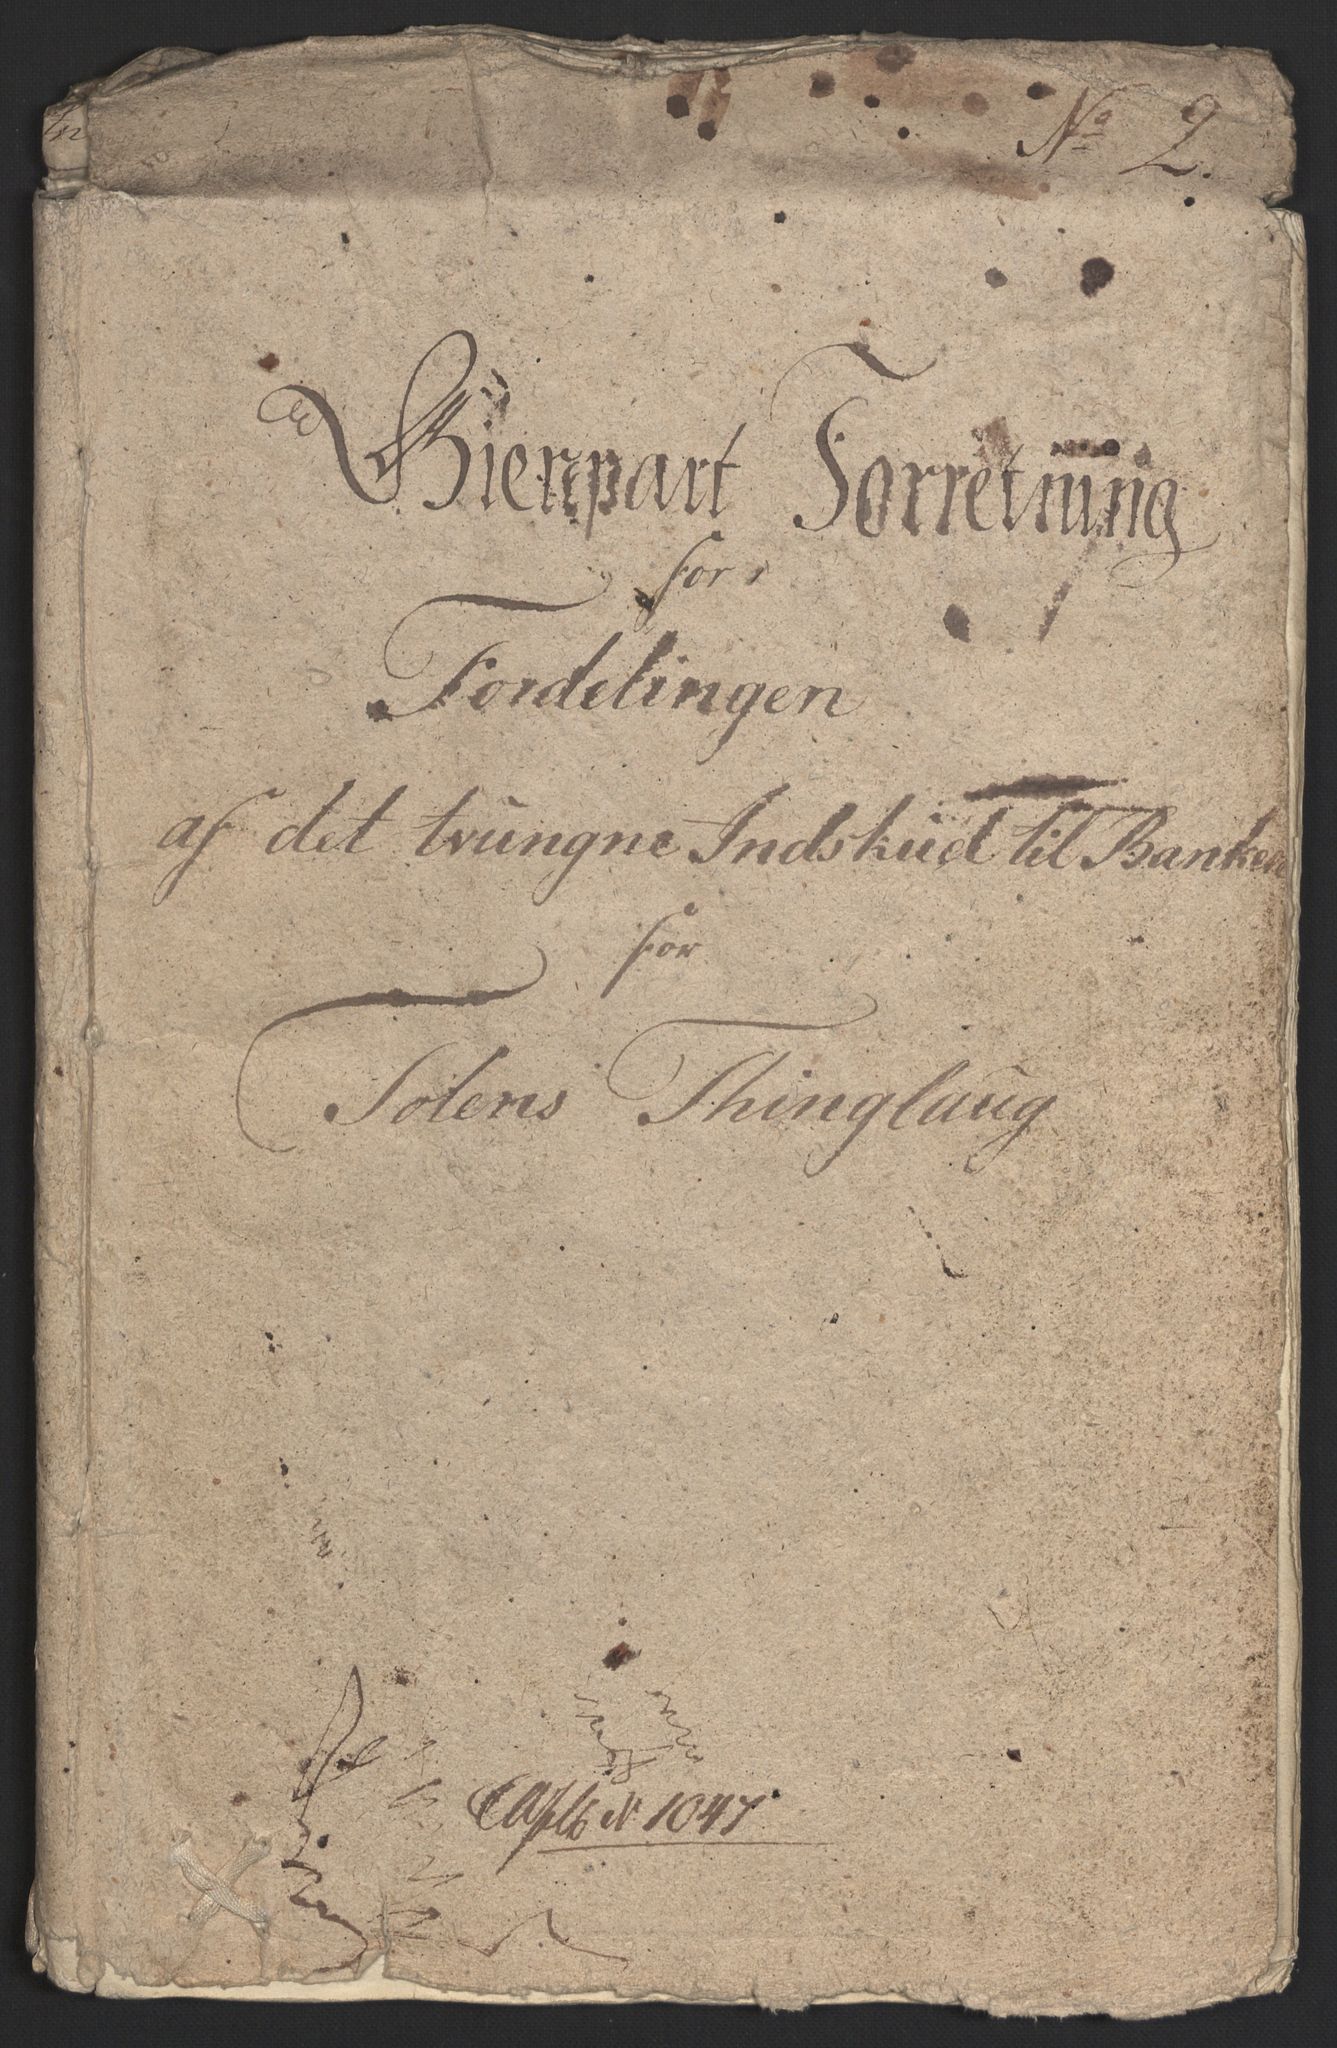 No 2.
Gienpart Forretning
for
Fordelingen
af det tvungne Indskud til Banken
for
Solens Thinglaug
No 1047